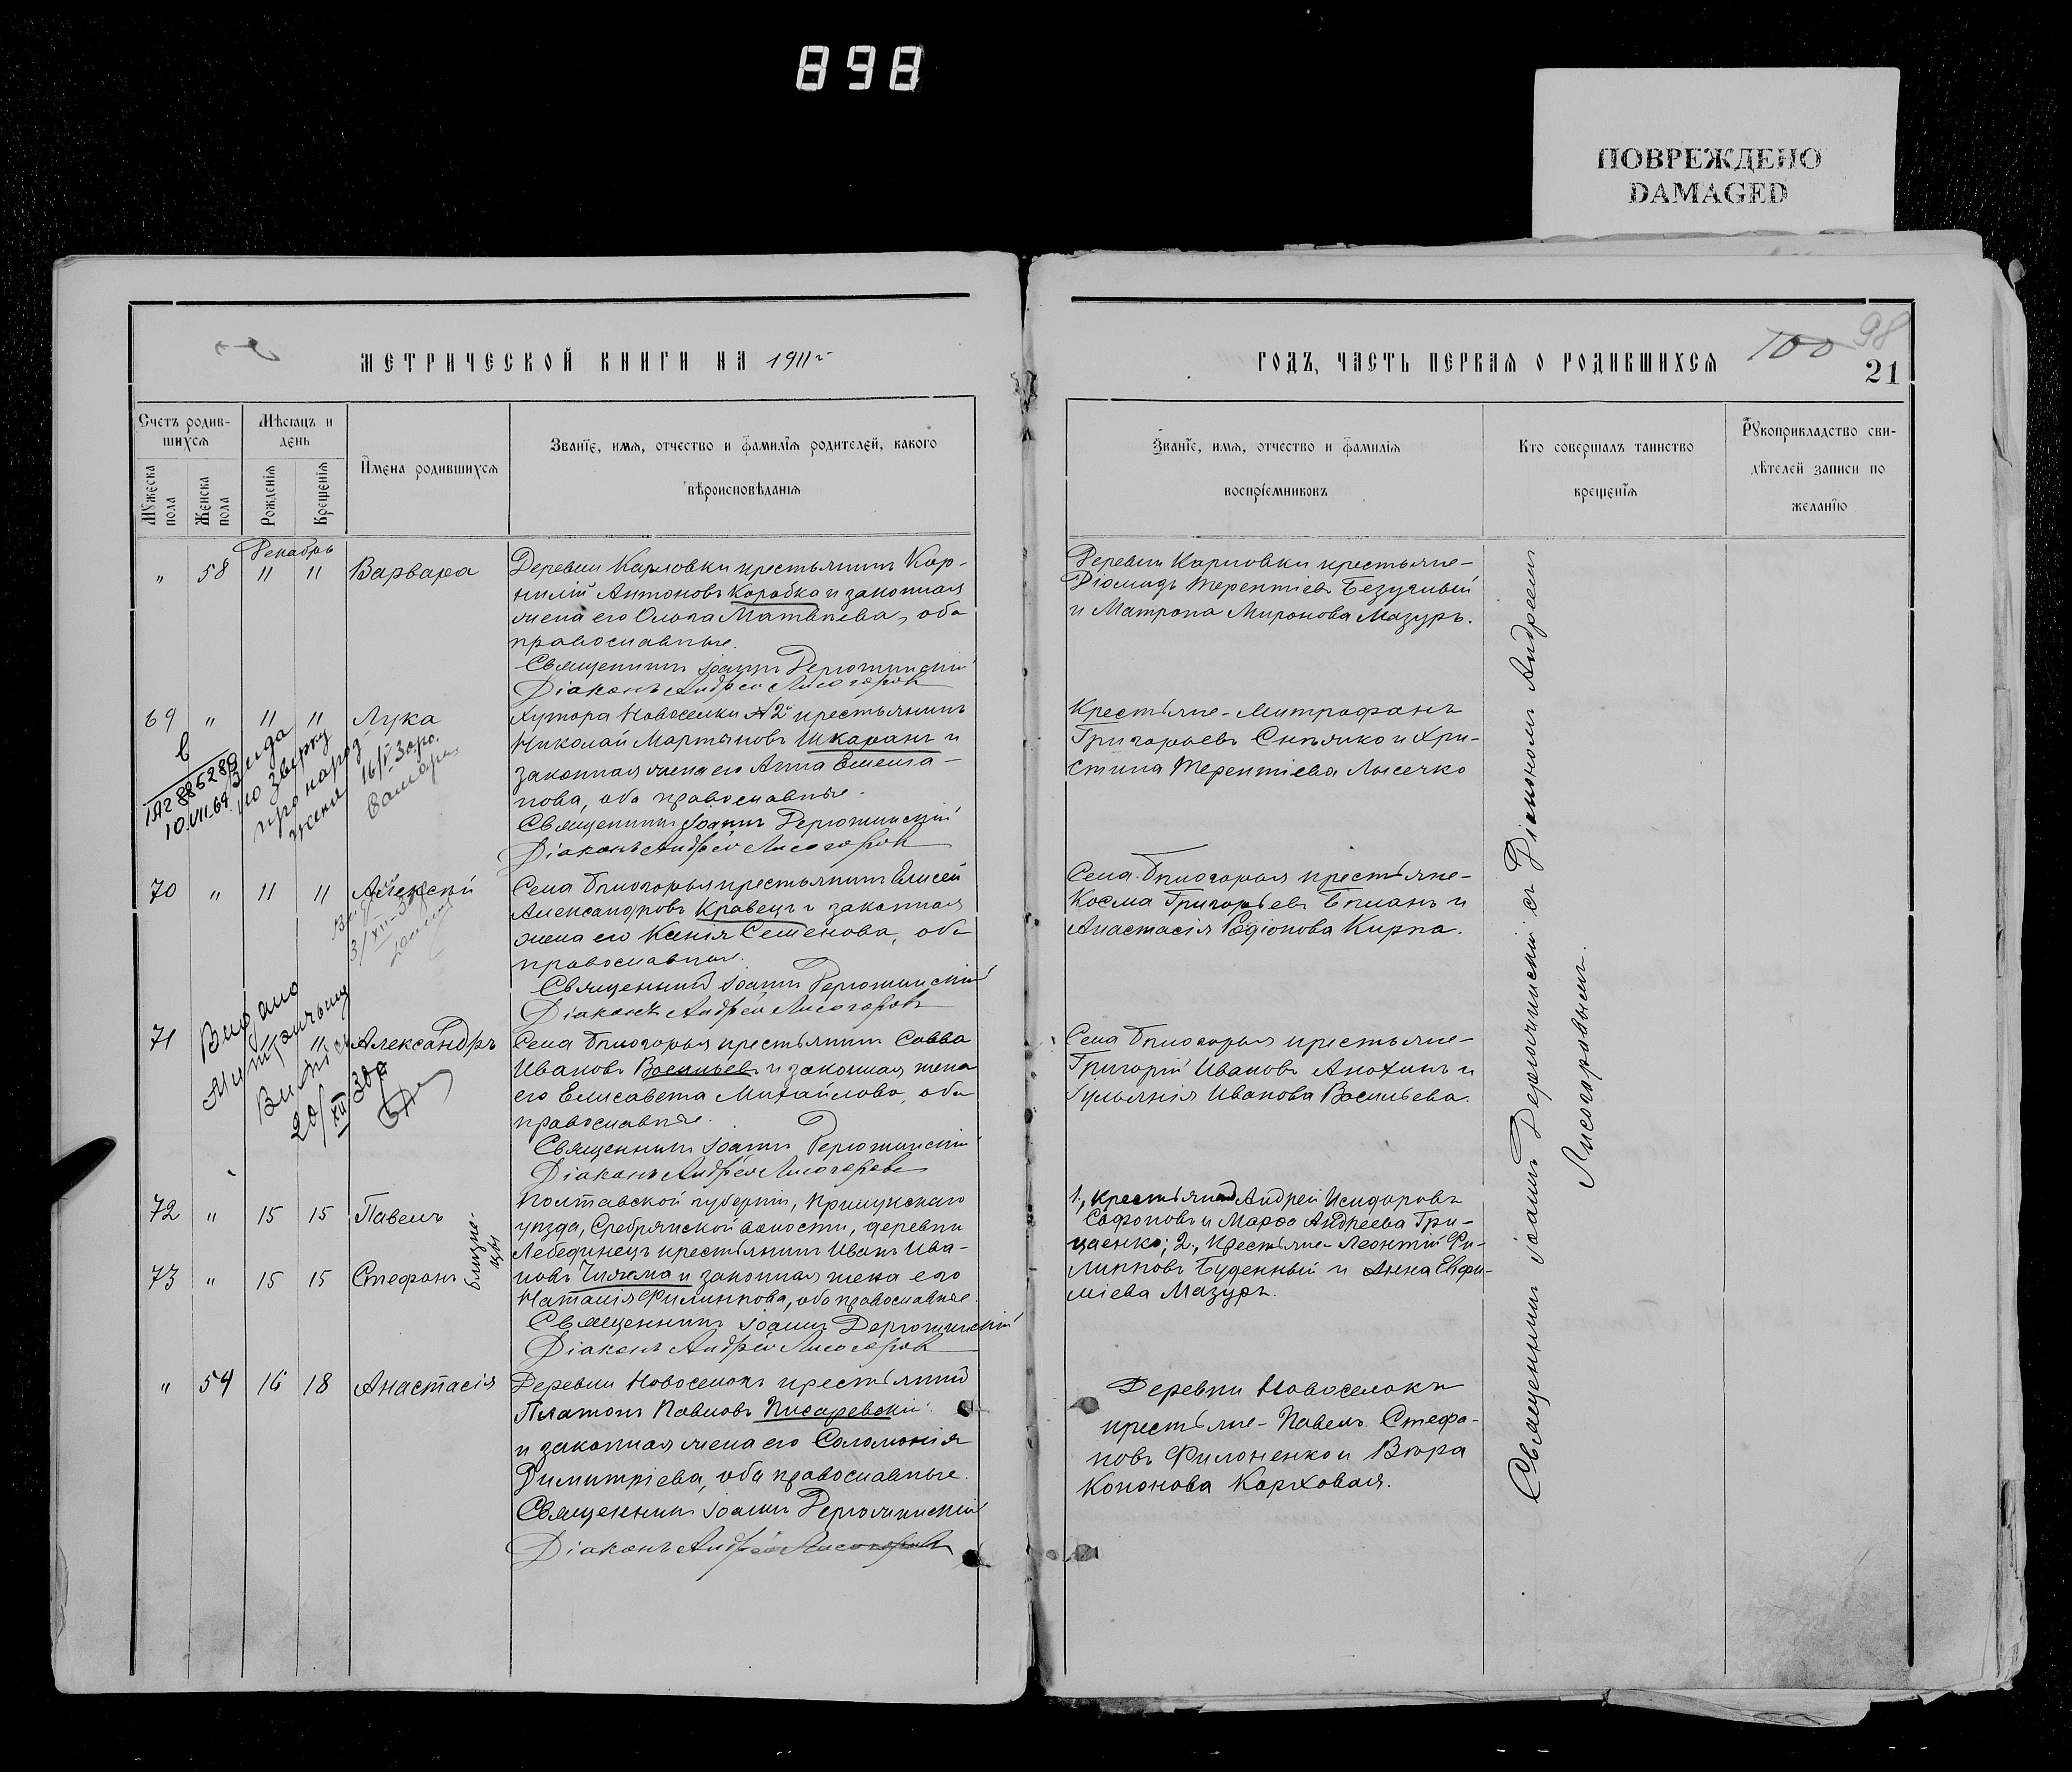 898
ПОВРЕЖДЕНО
DAMAGED
МЕТРИЧЕСКОЙ КНИГИ НА 1911 г
Счетъ родив-
шихся
Мѣсяцъ и
день
Имена родившихся
Званіе, имя, отчество и фамилія родителей, какого
вѣроисповѣданія
Мужеска
пола
Женска
пола
Рожденія
Крещенія
Декабрь
" 58 11 11 Варвара
Деревни Карловки крестьянинъ Кор-
нилій Антоновъ Коробка и законная
жена его Ольга Матвѣева, оба
православные.
Священникъ Іоаннъ Дерюжинскій
Діаконъ Андрей Лисогоровъ
69 " 11 11 Лука
Хутора Новоселки №2й крестьянинъ
Николай Мартыновъ Шкаранъ и
законная жена его Анна Емелиа-
нова, оба православные.
Священникъ Іоаннъ Дерюжинскій
Діаконъ Андрей Лисогоровъ
10.VII.69
70 " 11 11 Алексѣй
Села Бѣлогорья крестьянинъ Елисей
Александровъ Кравецъ и законная
жена его Ксенія Семенова, оба
православные.
Священникъ Іоаннъ Дерюжинскій
Діаконъ Андрей Лисогоровъ
71 " 11 11 Александръ
Села Бѣлогорья крестьянинъ Савва
Ивановъ Васильевъ и законная жена
его Елисавета Михайлова, оба
православные.
Священникъ Іоаннъ Дерюжинскій
Діаконъ Андрей Лисогоровъ
Видано
20/XII 30р
72 " 15 15 Павелъ
73 " 15 15 Стефанъ
близне-
цы
Полтавской губерніи, Прилукскаго
уѣзда, Сребрянской волости, деревни
Лебединецъ крестьянинъ Иванъ Ива-
новъ и законная жена его
Наталія Филиппова, оба православные.
Священникъ Іоаннъ Дерюжинскій
Діаконъ Андрей Лисогоровъ
" 54 16 18 Анастасія
Деревни Новоселокъ крестьянинъ
Платонъ Павловъ Писаревскій
и законная жена его Соломонія
Димитріева, оба православные.
Священникъ Іоаннъ Дерюжинскій
Діаконъ Андрей Лисогоровъ
ГОДЪ, ЧАСТЬ ПЕРВАЯ О РОДИВШИХСЯ
100 98
21
Званіе, имя, отчество и фамилія
воспріемниковъ
Кто совершалъ таинство
крещенія
Рукоприкладство сви-
дѣтелей записи по
желанію
Деревни Карловки крестьяне-
Діомидъ Терентіевъ Безуглый
и Матрона Миронова Мазуръ.
Крестьяне-Митрофанъ
Григорьевъ и Хри-
стина Терентіева Лысечко
Села Бѣлогорья крестьяне-
Косма Григорьевъ Бѣланъ и
Анастасія Родіонова Кирпа.
Села Бѣлогорья крестьяне-
Григорій Ивановъ Анохинъ и
Гульянія Иванова Васильева.
1., крестьяне Андрей Исидоровъ
Сафоновъ и Марѳа Андреева Гри-
ценко; 2., крестьяне-Леонтій Фи-
липповъ Буденный и Анна Евфи-
міева Мазуръ.
Деревни Новоселокъ
крестьяне-Павелъ Стефа-
новъ Филоненко и Вѣра
Кононова Корховая.
Священникъ Іоаннъ Дерюжинскій съ Діакономъ Андреемъ
Лисогоровымъ.